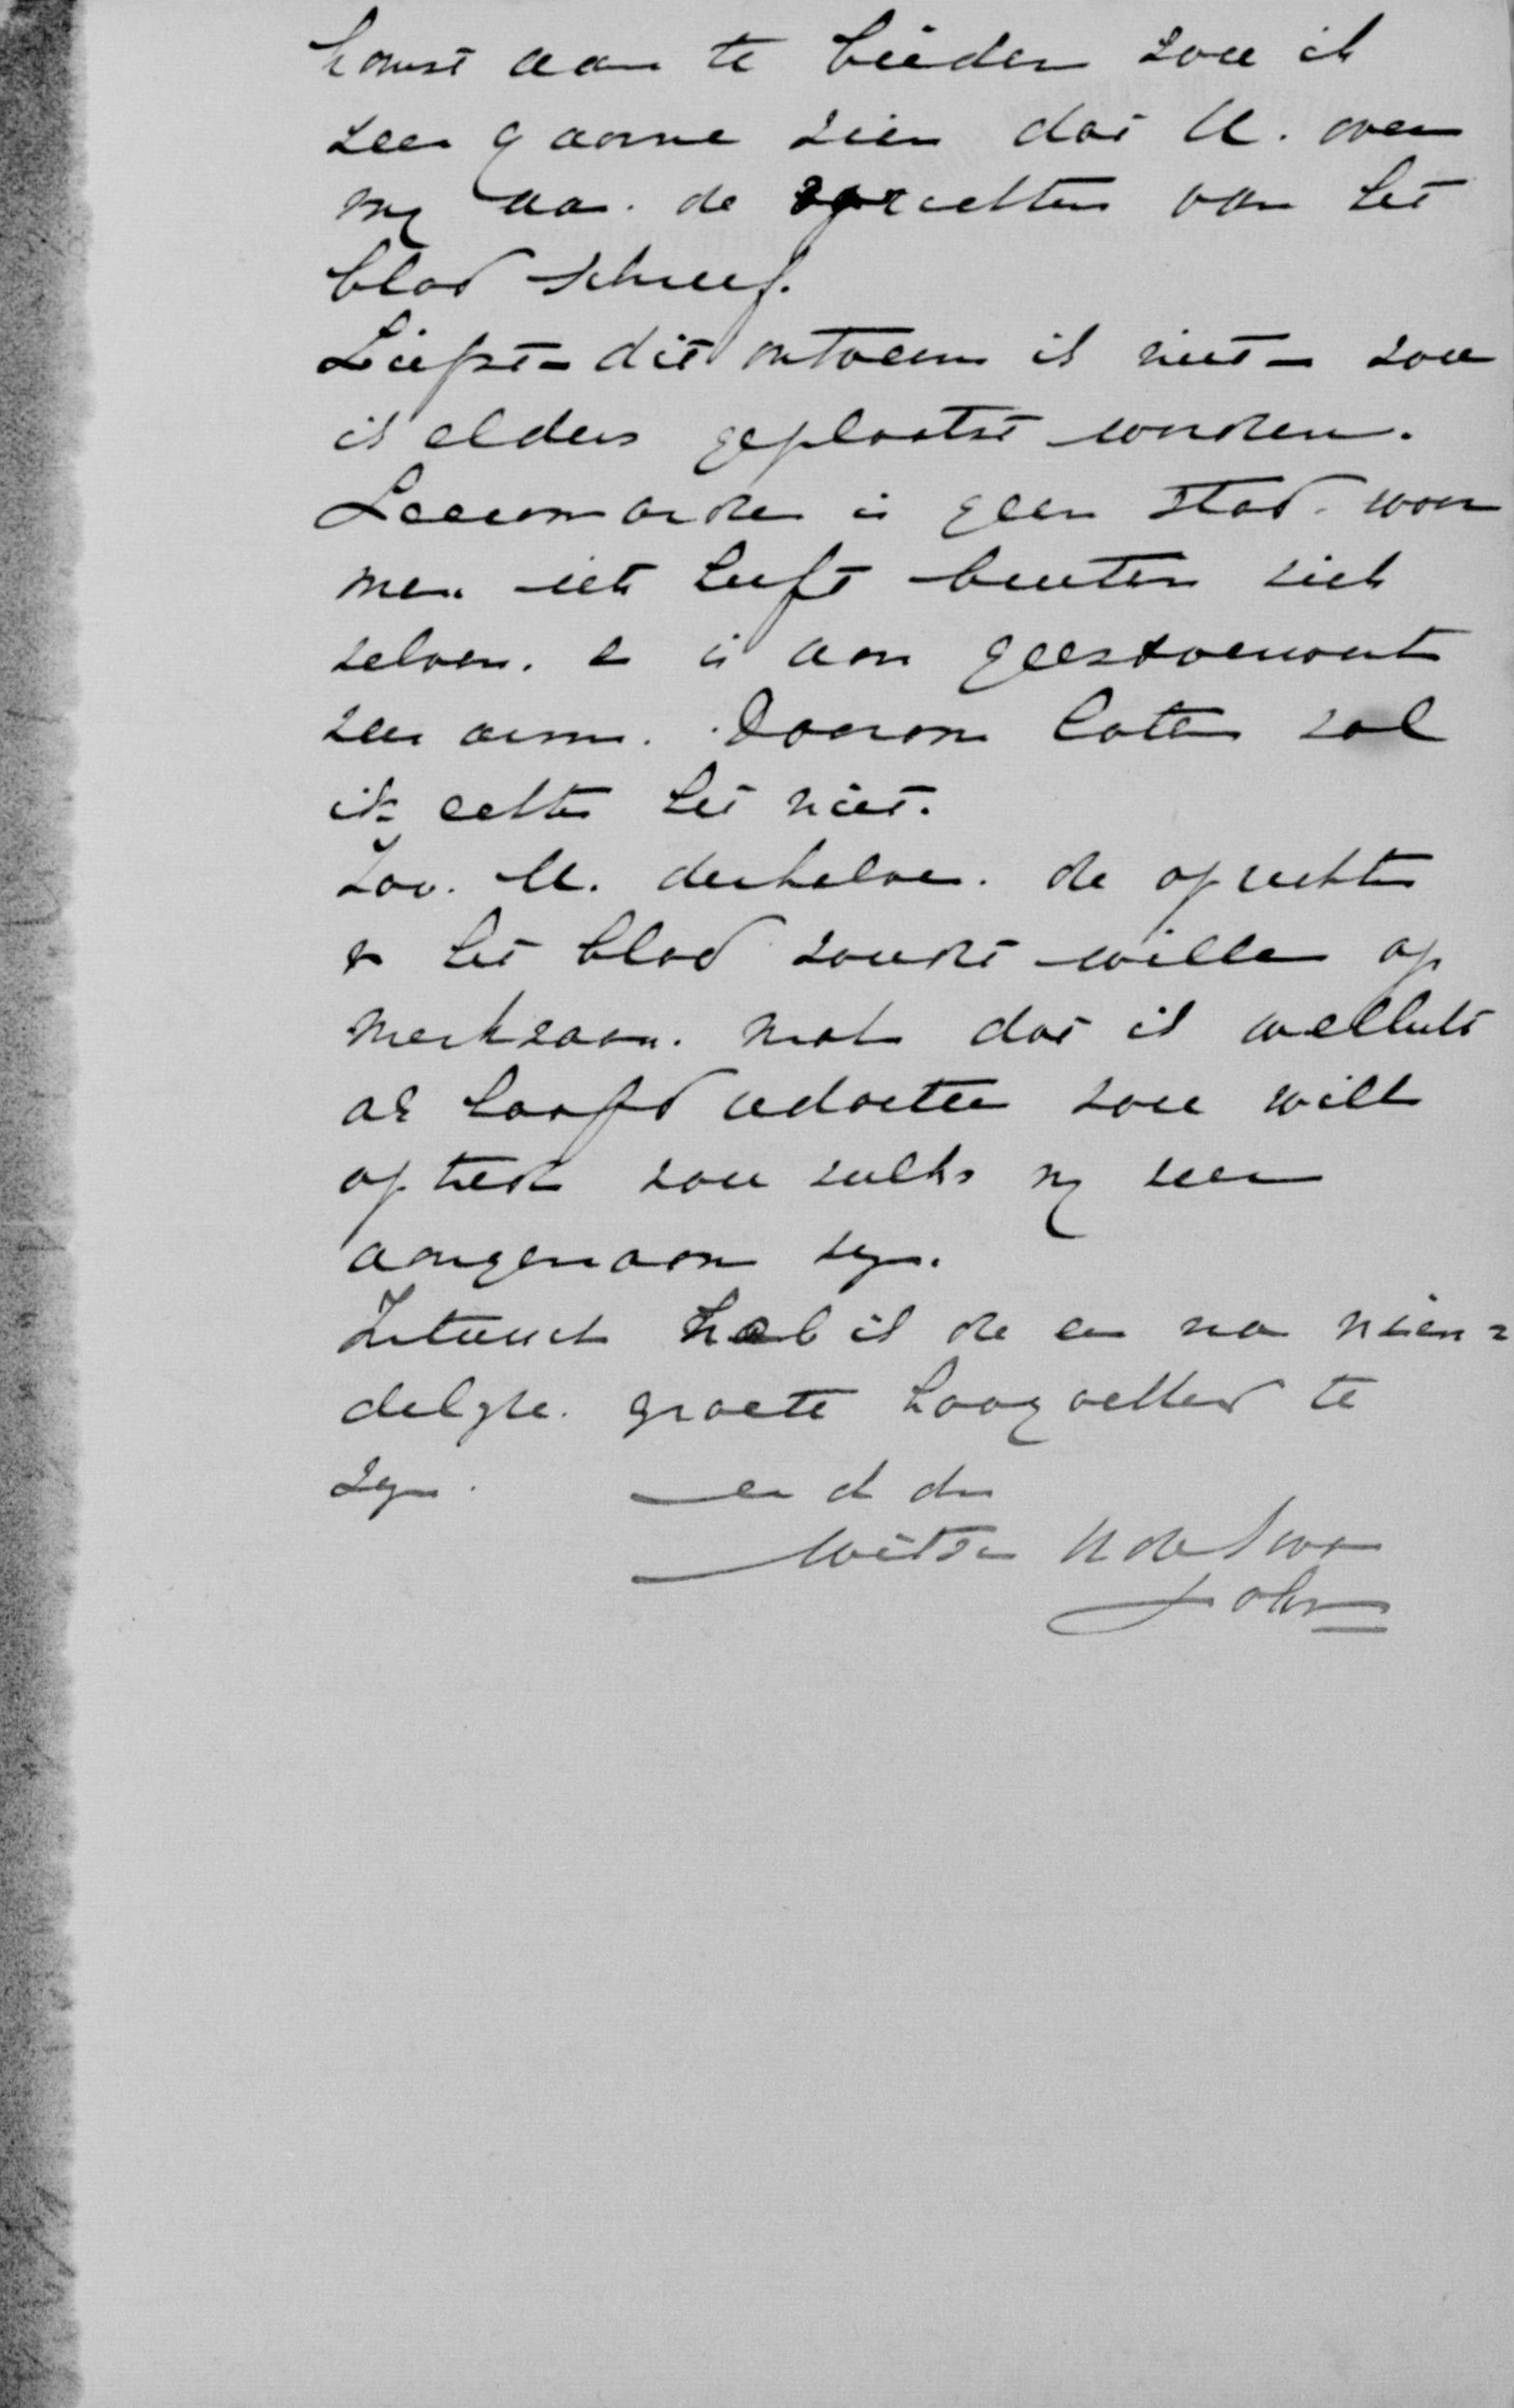 komst aan te bieden zou ik
zeer gaarne zien dat U. over
my aan de oprichters van het
blad schreef.
Liefst – dit ontveins ik niet – zou
ik elders geplaatst worden.
Leeuwarden is geen stad waar
men iets heeft buiten zich
zelven. en is aan geestverwant
zeer arm. Daarom laten zal
ik echter het niet.
Zou U. derhalve de oprichters
v het blad willen op
merkzaam maken dat ik wellicht
als hoofdredacteur zou willen
optreden zou zulks my zeer
aangenaam zyn.
Intusschen heb ik de eer na vrien=
delyke groete hoogachtend te
zyn. en d dr